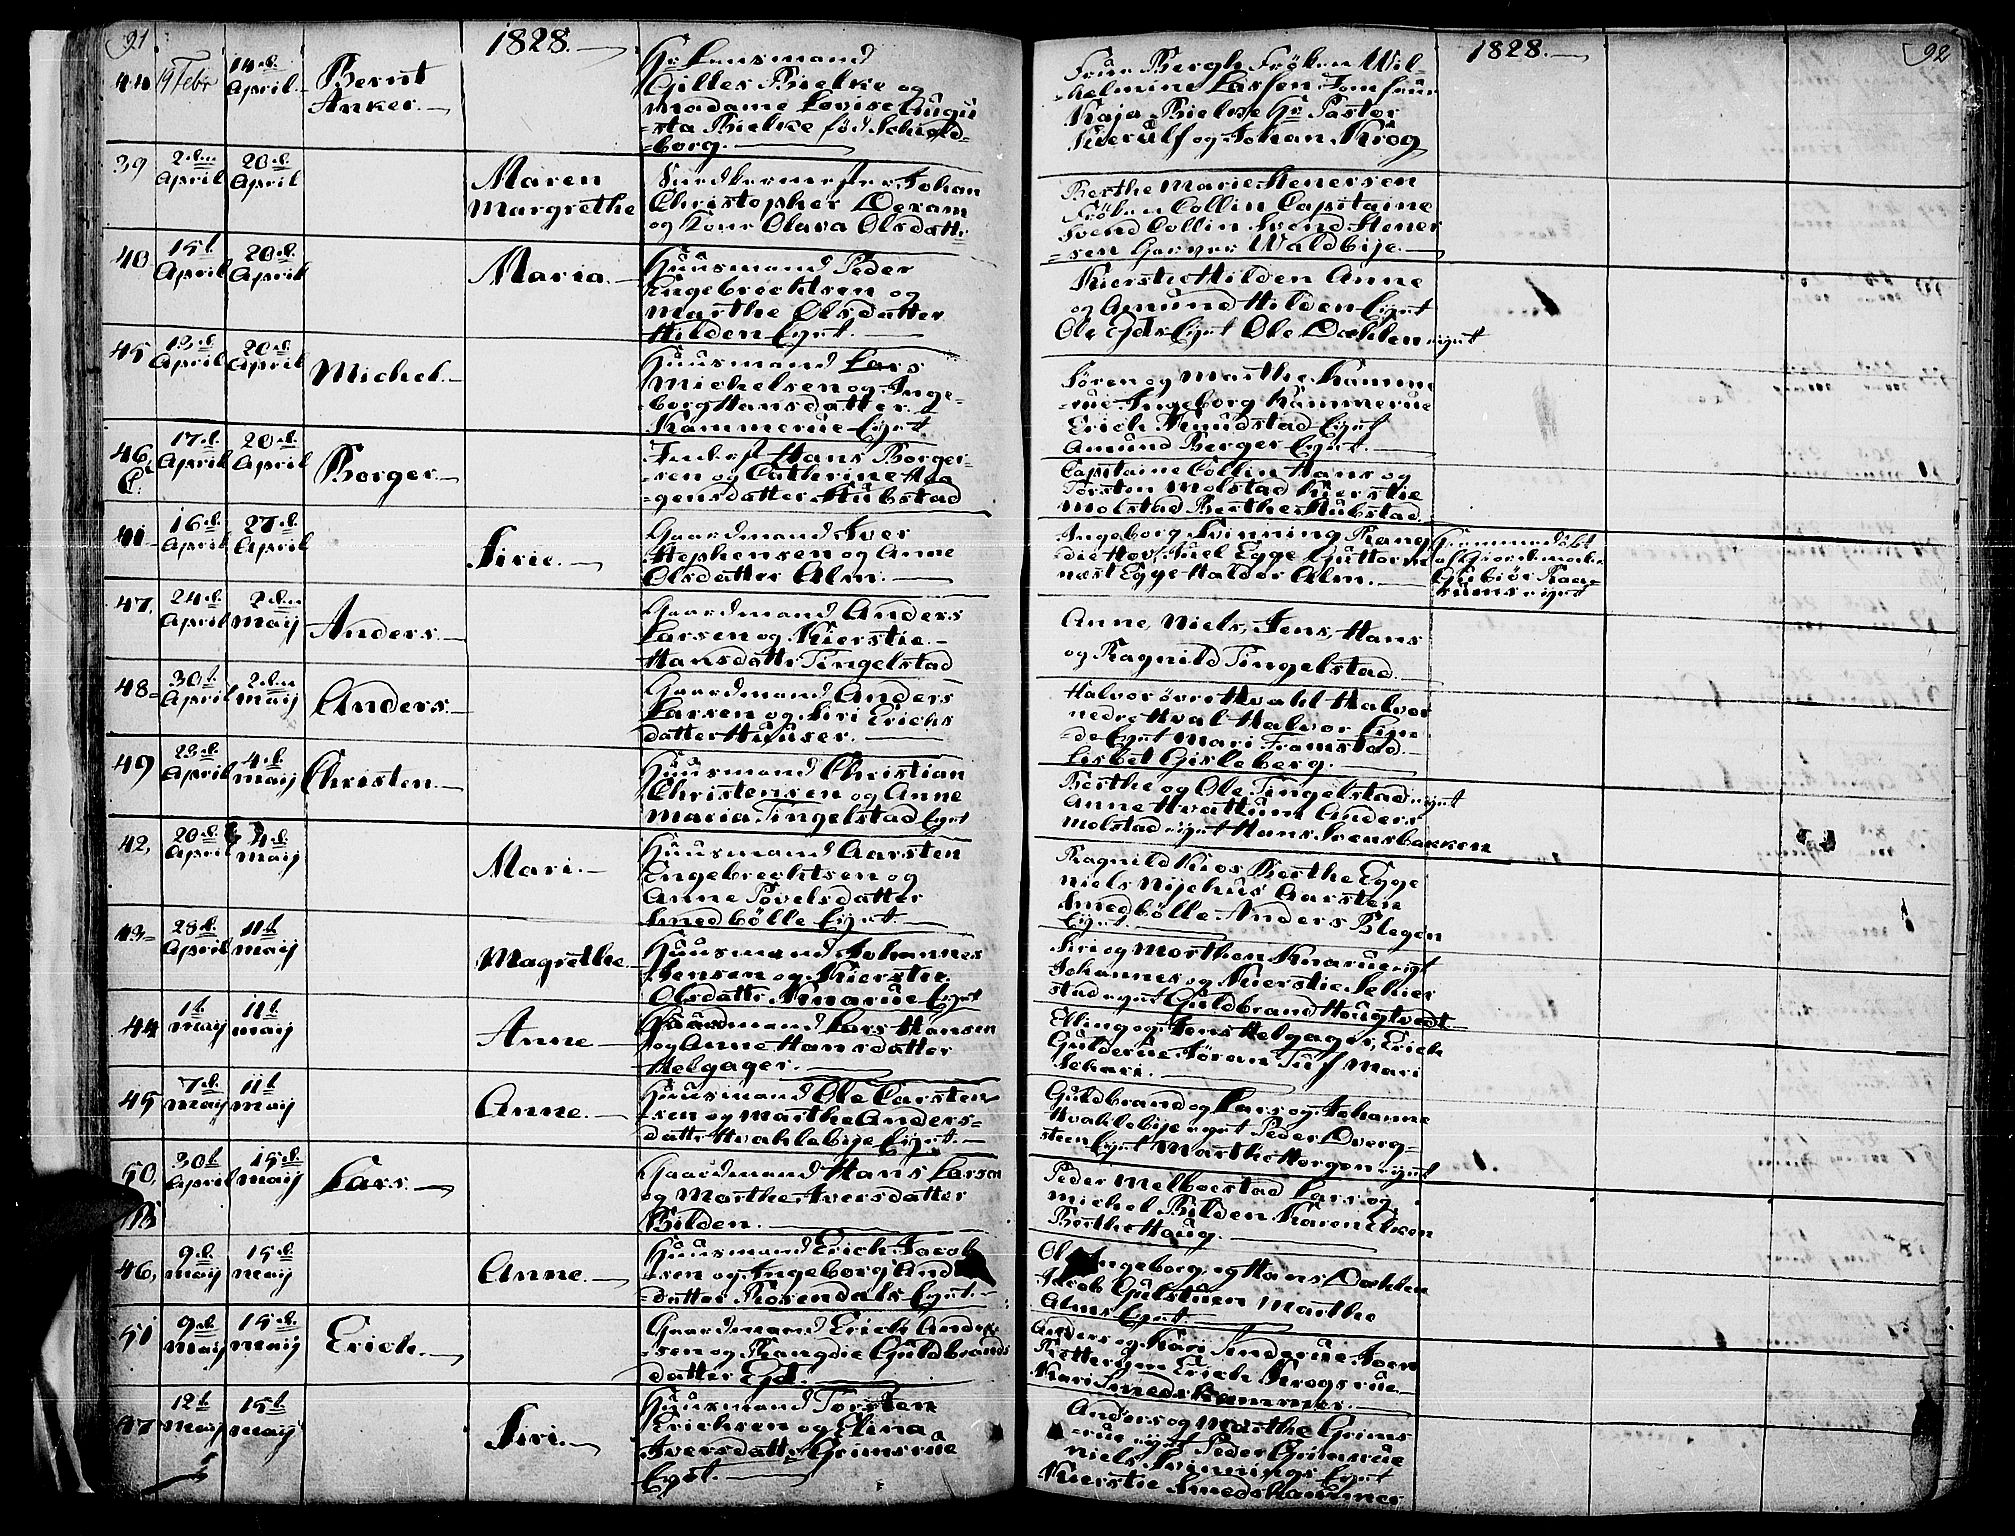 91
1828.
44 19 Febr 14de April Bernt Anker. Hr Lensmand
Gilles Bielke og
Madame Lovise Augu
=sta Bielke född Schold=
=borg.
39 2den April 20de April Maren Margrethe Johan
Christopher Dexam
og Kone Olava Olsdatt:
40 15de April 20de April Maria. Huusmand Peder
Engebrechtsen og
Marthe Olsdatter
Hilden Eyet.
45 13de April 20de April Michel. Huusmand Lars
Michelsen og Inge=
=borg Hansdatter
Kammerue Eyet
46 17de April 20de April Borger. Inderst Hans Borger=
=sen og Cathrine Haa
=gensdatter Hubstad
41 16de April 27de April Sirie. Gaardmand Iver
Stephensen og Anne
Olsdatter Alm.
47. 24de April 2den Maij Anders. Gaardmand Anders
Larsen og Kierstie
Hansdattr Tingelstad
48 30te April 2den Maij Anders. Gaardmand Anders
Larsen og Siri Erichs
datter Huuser.
49 23de April 4de Maij Christen. Huusmand Christian
Christensen og Anne
Maria Tingelstad Eyet
42, 20de April 4de Maij Mari. Huusmand Aarsten
Engebrechtsen og
Anne Povelsdatter
Smedbölle Eyet.
43 28de April 11te Maij Magrethe. Huusmand Johannes
Jensen og Kierstie
Olsdattr Knarue Eyet
44 1te Maij 11te Maij Anne Gaardmand Lars Hansen
og Anne Hansdatter
Helgager.
45 7de Maij 11te Maij Anne. Huusmand Ole Carsten
=sen og Marthe Anders=
=dattr Hvahlebye Eyet.
50, 30te April 15de Maij Lars. Gaardmand Hans Larsen
og Marthe Iversdatter
Bilden.
46, 9de Maij 15de Maij Anne. Huusmand Erich Jacob
=sen og Ingeborg And
=datter Rosendals Eyet.
51 9de Maij 15de Maij Erich. Gaardmand Erich Anders
=sen og Rangdie Guldbrands
datter Egt.
47 12te Maij 15te Maij Siri. Huusmand Torsten
Erichsen og Elina
Iversdatter Grimsrue
Eyet.
92
1828.
Frue Bergh Fröken Wil=
=helmine Lassen Jomfrue
Kaja Bielke Hr Pastor
Kierulf og Johan Krog
Berthe Marie Stenersen
Fröken Collin Capitaine
Svend Collin Svend Stener
=sen Garver Waldbije.
Kierstie Hilden Anne
og Amund Hilden Eyet
Ole Egts Eyet Ole Dæhlen eyet
Sören og Marthe Kamme
=rue Ingeborg Kammerue
Erich Knudstad Eyet
Amund Berger Eyet.
Capitaine Collin Hans og
Torsten Molstad Kierstie
Molstad Berthe Hubstad.
Ingeborg Svinning Rang
die Hov Juel Egge Guttorm
næst Egge Halder Alm.
Hiemmedöbt
af
Gubiör Raa=
=rums eyet
Anne, Niels, Jens, Hans
og Ragnild Tingelstad.
Halvor övre Hvahl Halvor
nedre Hval Halvor Lyn
=de Eyet Mari Framstad
Lisbet Gisleberg.
Berthe og Ole Tingelstad eyet
Anne Hvattum Anders
Molstad eyet Hans Svensbakken
Ragnild Kios Berthe Egge
Niels Nijehus Aarsten
Smedbölle Anders Blegen
Eyet.
Siri og Morthen Knarue eyet
Johannes og Kierstie Schier
stad eyet Guldbrand Haugtvedt
Elling og Jens Helgager, Erich
Gulderue Sören Tuf Mari
Schari.
Guldbrand og Lars og Johanne
Hvahlebije eyet Peder Dverg=
=steen Eyet Marthe Horgen eyet
Peder Melboestad Lars og
Michel Bilden Karen Elken
Berthe Haug.
Ole Ingeborg og Hans Dæhlen
Jacob Gulstuen Marthe
Alms Eyet
Anders og Kari Sinderue Joen
Rotterum Erich Krogsrue
Kari Smedshammer.
Anders og Marthe Grims
=rue eyet Peder Grimsrue
Niels Svinnings Eyet
Kierstie Smedshammer